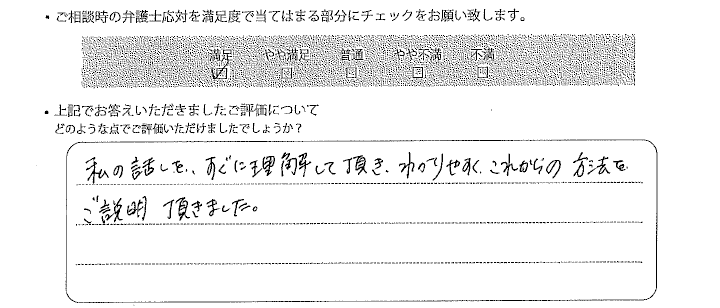 ・ご相談時の弁護士応対を満足度で当てはまる部分にチェックをお願い致します。
満足 やや満足 普通 やや不満 不満
・上記でお答えいただきましたご評価について
どのような点でご評価いただけましたでしょうか？
私の話しを、すぐに理解して頂き、わかりやすく、これからの方法を
ご説明頂きました。